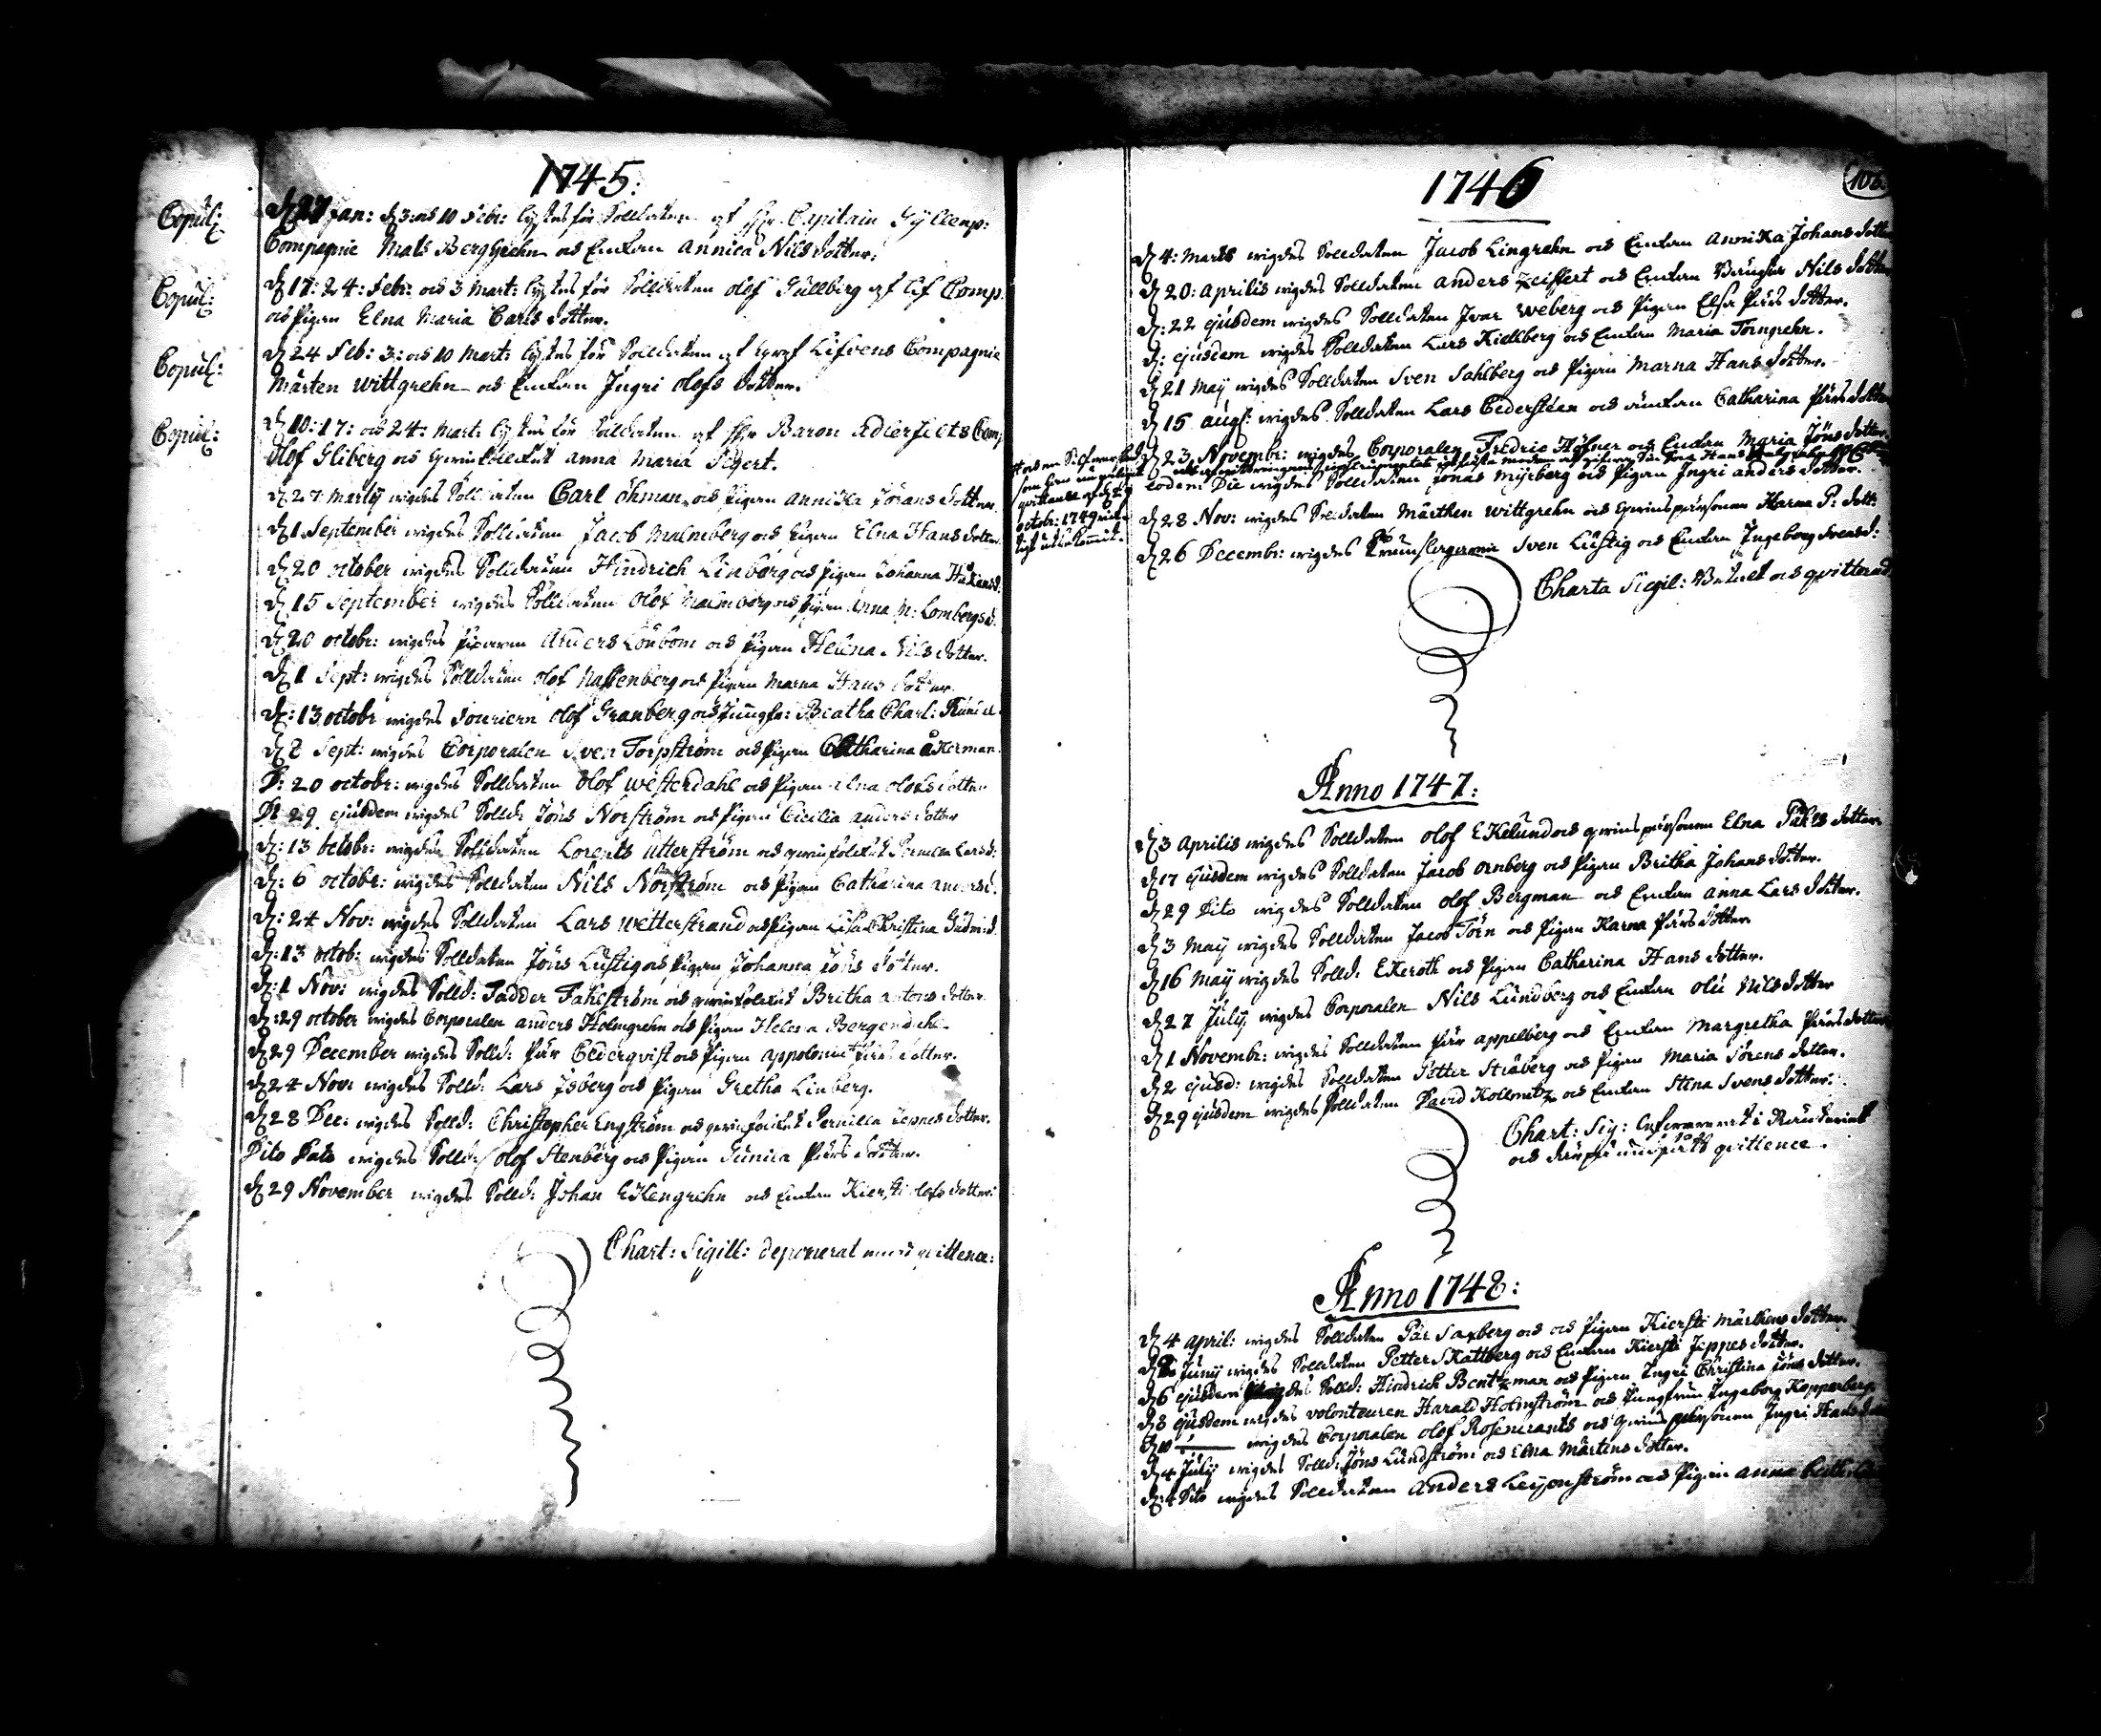 1745:
Copul:
d 27 Jan: d 3: och 10 Febr: lystes för Solldaten af Hr Capitain Gyllenp:
Compagnie Mats BergGrehn och Enkan Annica Nils dotter.
Copul:
d 17: 24: Febr: och 3 Mart: lystes för Solldaten olof Gullberg af Lif Comp.
och Pigan Elna Maria Carls dotter.
Copul:
d 24 Feb: 3: och 10 Mart: lystes för Solldaten af Lifvens Compagnie
Mårten wittgrehn och Enkan Jngri olofs dotter.
Copul:
d 10: 17: och 24: Mart: lystes för Solldaten af Hr Baron Adlerfelts Comp
Olof Gliberg och qwinfolcket anna Maria Segert.
d 27 Martij wigdes Solldaten Carl Öhman och Pigan annicka Jörans dotter.
d 1 September wigdes Solldaten Jacob Malmberg och Pigan Elna Hans dotter.
d 20 october wigdes Solldaten Hindrich Linborg och Pigan Johanna Håkansd:
d 15 September wigdes Solldaten Olof Malmberg och Pigan Anna M: Lombergsd:
d 20 octobr: wigdes Anders Löfbom och Pigan Helena Nils dotter.
d 1 Sept: wigdes Solldaten olof Nassenberg och Pigan Marna Hans dotter.
d: 13 octobr wigdes Fouriern olof Granberg och Jungfr: Beatha Charl:
d 8 Sept: wigdes Corporalen Sven Torpström och Pigan Catharina åkerman.
D: 20 octobr: wigdes Solldaten olof westerdahl och Pigan Elna olofs dotter
D 29 ejusdem wigdes Solld: Jöns Norström och Pigan Cicilia anders dotter
d: 13 octobr: wigdes Solldaten Lorents Utterström och qwinfolcket Pernilla Larsd:
d: 6 octobr: wigdes Solldaten Nils Norström och Pigan Catharina andersd.
d: 24 Nov: wigdes Solldaten Lars wetterstrand och Pigan Lisa Christina Gudm:d.
d: 13 octob: wigdes Solldaten Jöns Lustig och Pigan Johanna Jöns dotter.
d: 1 Nov: wigdes Solld: Fadder Fahlström och qwinfolcket Britha antons dotter
d: 29 october wigdes Corporalen anders Holmgrehn och Pigan Helena Bergendahl
d 29 December wigdes Solld: Pär Cederqvist och Pigan appolonia Pärs dotter.
d 24 Nov: wigdes Solld: Lars Jsberg och Pigan Gretha Linberg.
d 28 Dec: wigdes Solld: Christopher Engström och qwinfolcket Pernilla Jeppes dotter.
Dito Dato wigdes Solld: olof Stenberg och Pigan Gunica Pärs dotter.
d 29 November wigdes Solld: Johan Ekengrehn och Enkan Kiersti olofs dotter:
Chart: Sigill: deponerat med qvittence:
1746
106.
d 4: Marts wigdes Solldaten Jacob Lingrehn och Enkan Annika Johans dotter
d 20: Aprilis wigdes Solldaten anders Zeissert och Enkan Bängta Nils dotter
d: 22 ejusdem wigdes Solldaten Jvar Weberg och Pigan Elsa Pärs dotter.
d: ejusdem wigdes Solldaten Lars Kiellberg och Enkan Maria Törngrehn.
d 21 Maij wigdes Solldaten Sven Sahlberg och Pigan Marna Hans dotter.
d 15 augs: wigdes Solldaten Lars Cedersteen och änkan Catharina Pärs dotter
d 23 Novembr: wigdes Corporalen Fredric Höfner och Enkan Maria Jöns dotter
eodem Die wigdes Solldaten Jonas Myrberg och Pigan Jngri anders dotter.
octobr: 1749
d 28 Nov: wigdes Soldaten Mårthen wittgrehn och qwinspersonen Karna P: dott:
d 26 Decembr: wigdes Sven Lustig och Enkan Jngeborg Svensd:
Charta Sigil: Betalt och qvitterad
Anno 1747:
d 3 Aprilis wigdes Solldaten olof Ekelund och qwinspersonen Elna Påhls dotter
d 17 ejusdem wigdes Solldaten Jacob ornberg och Pigan Britha Johans dotter.
d 29 Dito wigdes Solldaten olof Bergman och Enkan anna Lars dotter.
d 3 Maij wigdes Solldaten Jacob Törn och Pigan Karna Pärs dotter
d 16 Maij wigdes Solld: Ekeroth och Pigan Catharina Hans dotter.
d 27 Julij wigdes Corporalen Nils Lundberg och Enkan olu Nils dotter
d 1 Novembr: wigdes Solldaten Pär appelberg och Enkan Margretha Pärs dotter
d 2 ejusd: wigdes Solldaten Petter Stråberg och Pigan Maria Sörens dotter.
d 29 ejusdem wigdes Solldaten David Kollmitz och Enkan Stina Svens dotter:
Chart: Sig: Lefwererat i Ränteriet
och därpå undfått qvittence.
Anno 1748:
d 4 April: wigdes Solldaten Pär Saxberg och och Pigan Kiersti Mårthens dotter.
Junij wigdes Solldaten Petter Skattberg och Enkan Kiersti Jeppes dotter.
d 6 ejusdem wigdes Solld: Hindrich Bentzman och Pigan Jngri Christina Jöns dotter.
d 8 ejusdem wigdes volonteuren Harald Holmström och Jungfrun Jngeborg Kopperberg
d 10 — wigdes Corporalen olof Rosencrants och qwinspersonen Jngri Hans dotter
d 4 Julij wigdes Solld: Jöns Lundström och Elna Mårtens dotter.
d: 4 Dito wigdes Solldaten anders Leijonström och Pigan anna